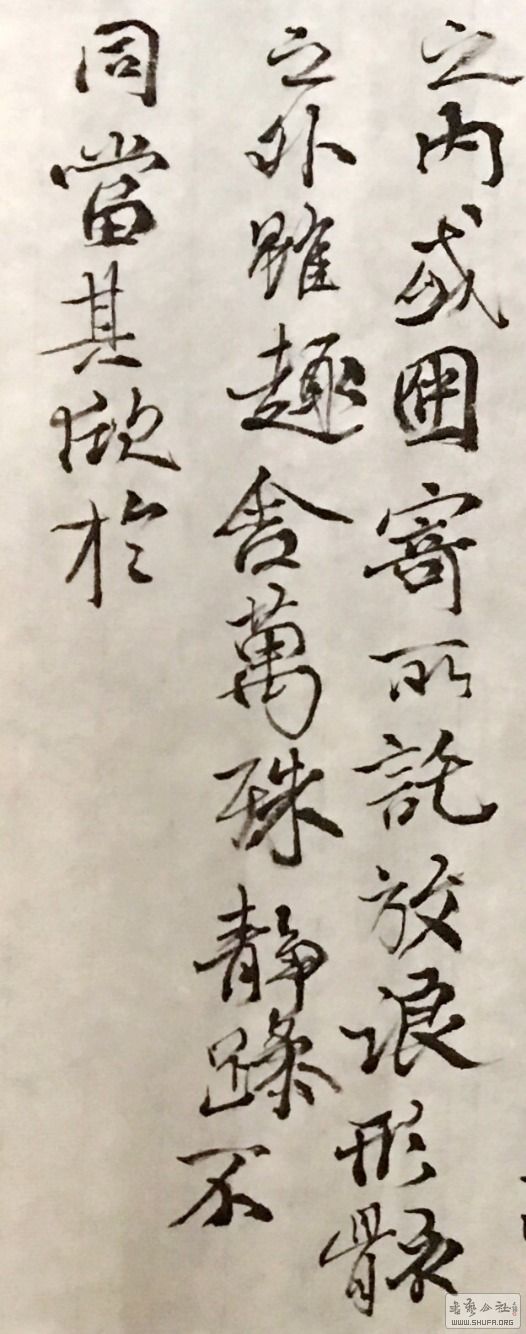 之内或因寄所託放浪形骸
之外雖趣舍萬殊静躁不
同當其欣於
書藝公社
WWW.SHUFA.ORG